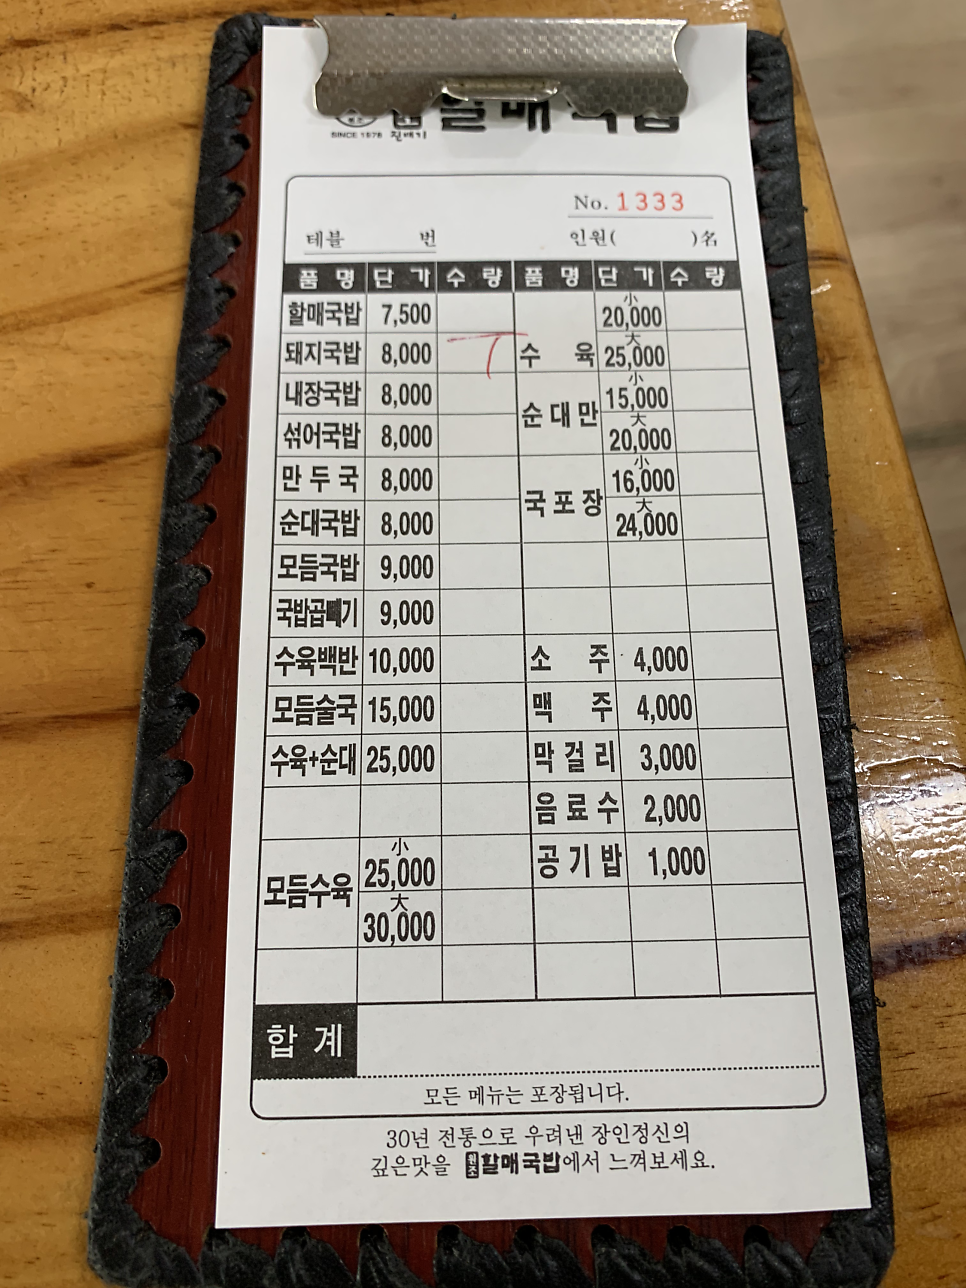 할매국밥
SINCE 1978 진배기
No. 1333
테블 번 인원( )名
품명 단가 수량 품명 단가 수량
할매국밥 7,500 小 20,000
돼지국밥 8,000 수육 大 25,000
내장국밥 8,000 순대만 小 15,000
섞어국밥 8,000 大 20,000
만두국 8,000 국포장 小 16,000
순대국밥 8,000 大 24,000
모듬국밥 9,000
국밥곱빼기 9,000
수육백반 10,000 소주 4,000
모듬술국 15,000 맥주 4,000
수육+순대 25,000 막걸리 3,000
음료수 2,000
모듬수육 小 25,000 공기밥 1,000
大 30,000
합계
모든 메뉴는 포장됩니다.
30년 전통으로 우려낸 장인정신의
깊은맛을 원조할매국밥에서 느껴보세요.